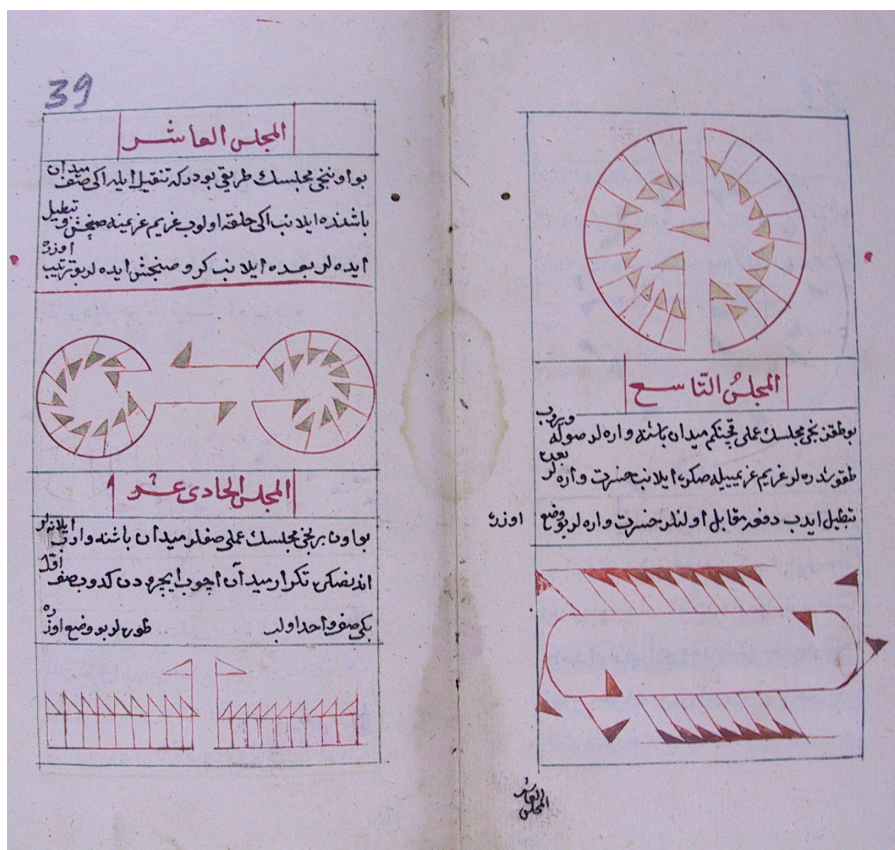 المجلس التاسع
بو طقزنجی مجلسك عملی قچنكم میدان باشنه واره لر صوله ویروب
طقوشدره لر غریم غریمیله صكره ایلانب حسرت واره لر بعده
تبطیل ایدب دفعه مقابل اولنلر حسرت واره لر بو وضع اوزره
المجلس العاشر
39
المجلس العاشر
بو اوننجی مجلسك طریقی بودوركه تنقیل ایله ایكی صف میدان
باشنده ایلانب ایكی حلقه اولوب غریم غریمینه صنجش و تبطیل
ایده لر بعده ایلانب كرو صنجش ایده لر بو ترتیب اوزره
المجلس الحادی عشر
بو اون برنجی مجلسك عملی صفلر میدان باشنه واروب ایلانه لر
اندنصكره تكرار میدان اچوب ایچرودن كدوب صف اول
ایكی صف واحد اولب طوره لر بو وضع اوزره